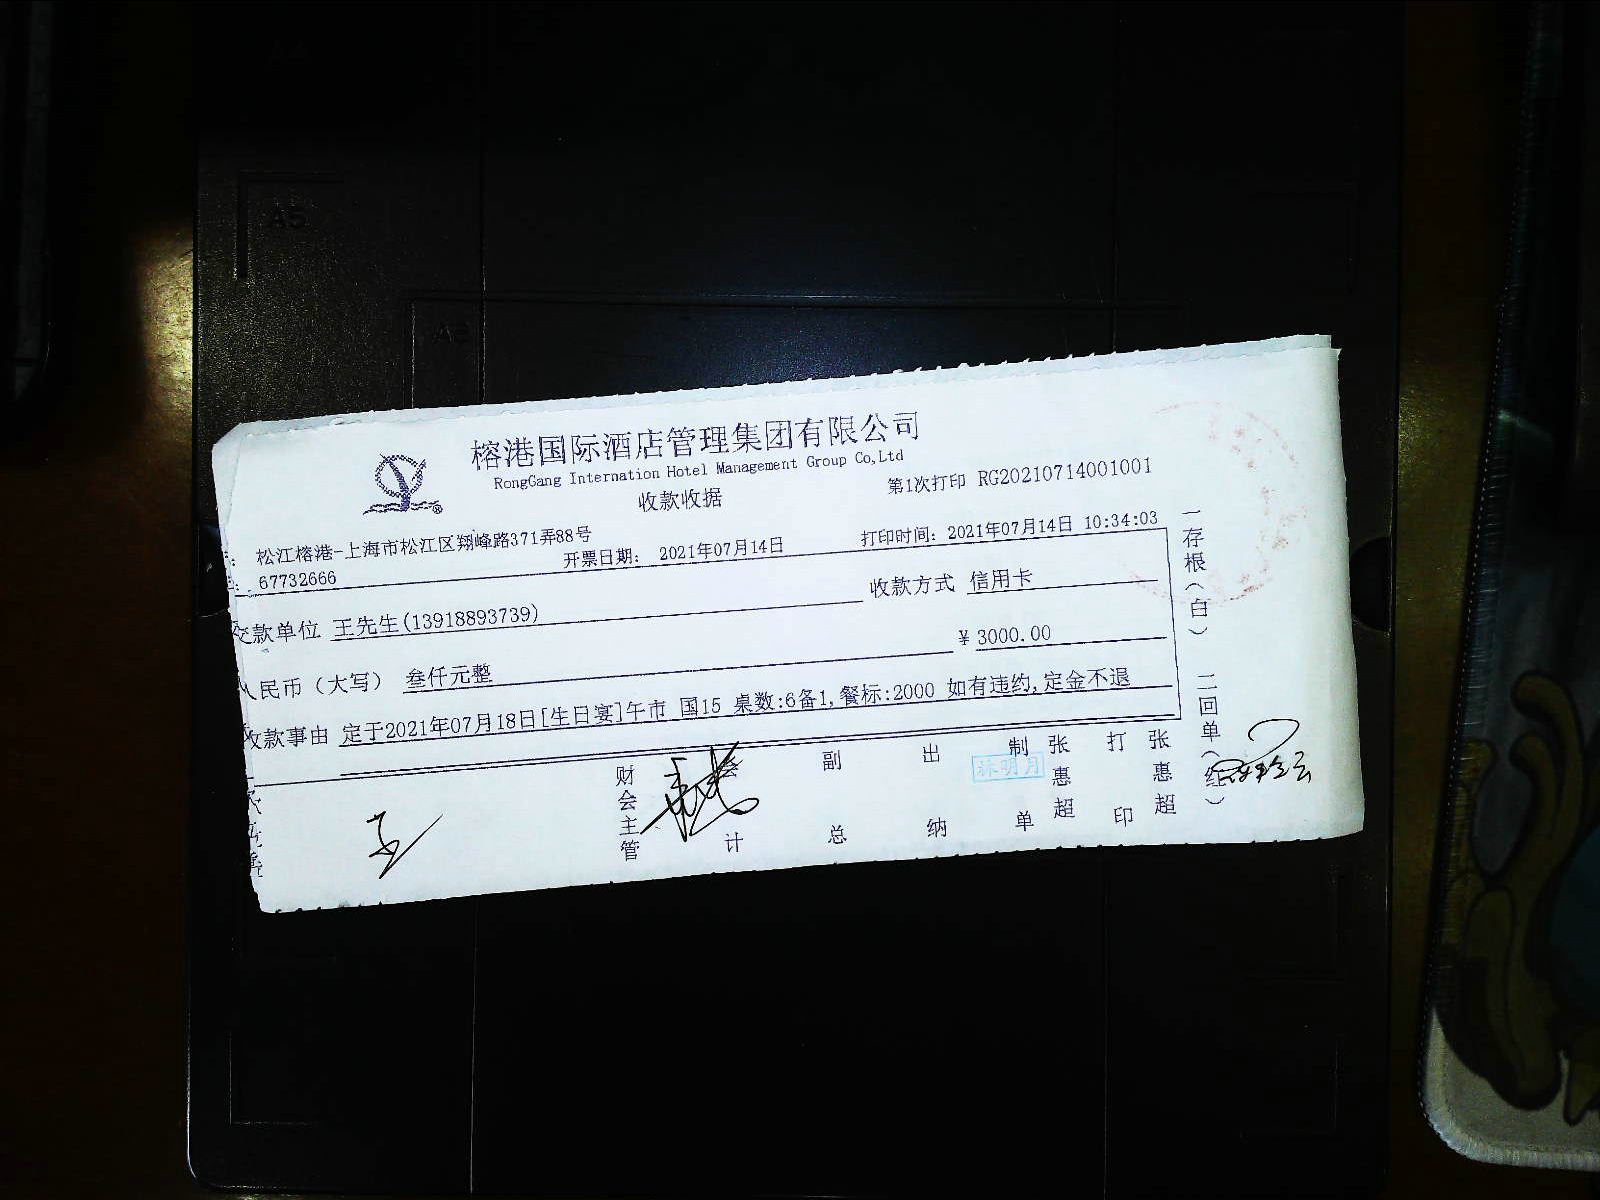 榕港国际酒店管理集团有限公司
RongGang Internation Hotel Management Group Co,Ltd
收款收据
第1次打印 RG20210714001001
松江榕港-上海市松江区翔峰路371弄88号
67732666
开票日期: 2021年07月14日
打印时间: 2021年07月14日 10:34:03
交款单位 王先生(13918893739)
收款方式 信用卡
人民币（大写） 叁仟元整
¥ 3000.00
收款事由 定于2021年07月18日[生日宴]午市 国15 桌数:6备1,餐标:2000 如有违约,定金不退
王
财会主管
会计
副总
出纳
林明月
制单
张惠超
打印
张惠超
一存根（白） 二回单（红）
A5